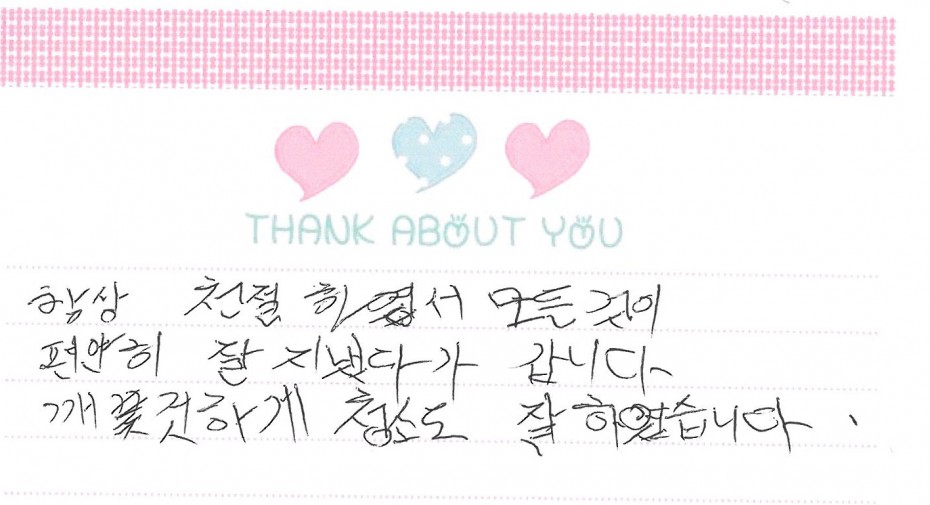 THANK ABOUT YOU
항상 천절 히 엽서 모든 것이
편안히 잘 지냈다가 갑니다.
깨꽃것하게 청소도 잘 하였습니다.